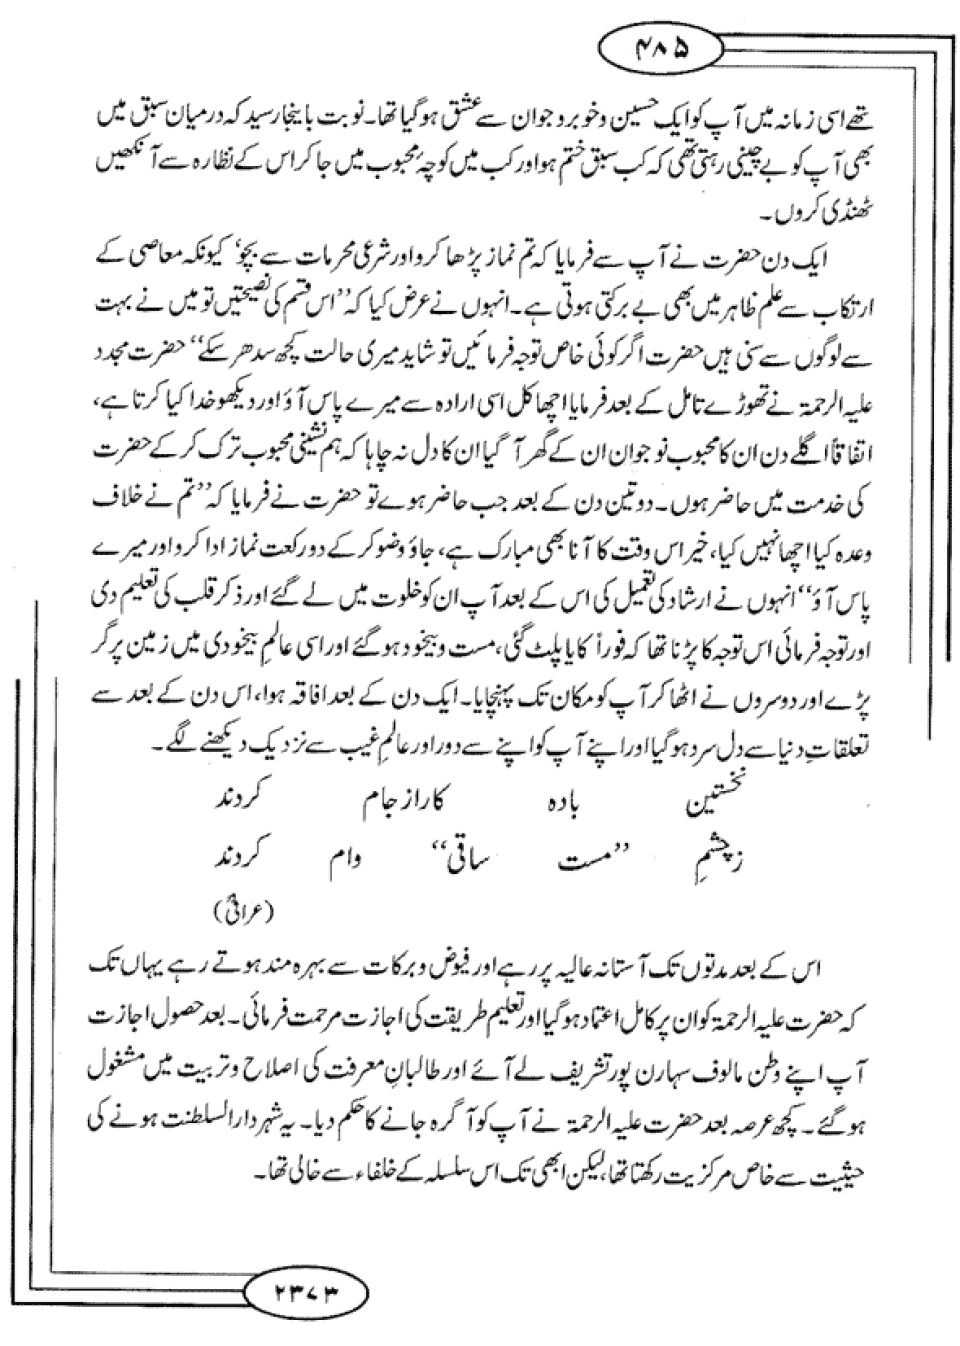 ۴۸۵
تھے اسی زمانہ میں آپ کو ایک حسین و خوبرو جوان سے عشق ہو گیا تھا۔ نوبت باینجا رسید کہ درمیان سبق میں
بھی آپ کو بے چینی رہتی تھی کہ کب سبق ختم ہو اور کب میں کوچۂ محبوب میں جا کر اس کے نظارہ سے آنکھیں
ٹھنڈی کروں۔
ایک دن حضرت نے آپ سے فرمایا کہ تم نماز پڑھا کرو اور شرعی محرمات سے بچو‘ کیونکہ معاصی کے
ارتکاب سے علم ظاہر میں بھی بے برکتی ہوتی ہے۔ انہوں نے عرض کیا کہ ’’اس قسم کی نصیحتیں تو میں نے بہت
سے لوگوں سے سنی ہیں حضرت اگر کوئی خاص توجہ فرمائیں تو شاید میری حالت کچھ سدھر سکے‘‘ حضرت مجدد
علیہ الرحمۃ نے تھوڑے تامل کے بعد فرمایا اچھا کل اسی ارادہ سے میرے پاس آؤ اور دیکھو خدا کیا کرتا ہے،
اتفاقاً اگلے دن ان کا محبوب نوجوان ان کے گھر آ گیا ان کا دل نہ چاہا کہ ہم نشینی محبوب ترک کر کے حضرت
کی خدمت میں حاضر ہوں۔ دو تین دن کے بعد جب حاضر ہوے تو حضرت نے فرمایا کہ ’’تم نے خلاف
وعدہ کیا اچھا نہیں کیا، خیر اس وقت کا آنا بھی مبارک ہے، جاؤ وضو کر کے دو رکعت نماز ادا کرو اور میرے
پاس آؤ‘‘ انہوں نے ارشاد کی تعمیل کی اس کے بعد آپ ان کو خلوت میں لے گئے اور ذکر قلب کی تعلیم دی
اور توجہ فرمائی اس توجہ کا پڑنا تھا کہ فوراً کایا پلٹ گئی، مست و بیخود ہو گئے اور اسی عالمِ بیخودی میں زمین پر گر
پڑے اور دوسروں نے اٹھا کر آپ کو مکان تک پہنچایا۔ ایک دن کے بعد افاقہ ہوا، اس دن کے بعد سے
تعلقاتِ دنیا سے دل سرد ہو گیا اور اپنے آپ کو اپنے سے دور اور عالمِ غیب سے نزدیک دیکھنے لگے۔
نخستین بادہ کاراز جام کردند
زچشمِ ’’مست ساقی‘‘ وام کردند
(عراقیؒ)
اس کے بعد مدتوں تک آستانہ عالیہ پر رہے اور فیوض و برکات سے بہرہ مند ہوتے رہے یہاں تک
کہ حضرت علیہ الرحمۃ کو ان پر کامل اعتماد ہو گیا اور تعلیم طریقت کی اجازت مرحمت فرمائی۔ بعد حصول اجازت
آپ اپنے وطن مالوف سہارن پور تشریف لے آئے اور طالبانِ معرفت کی اصلاح و تربیت میں مشغول
ہو گئے۔ کچھ عرصہ بعد حضرت علیہ الرحمۃ نے آپ کو آگرہ جانے کا حکم دیا۔ یہ شہر دار السلطنت ہونے کی
حیثیت سے خاص مرکزیت رکھتا تھا، لیکن ابھی تک اس سلسلہ کے خلفاء سے خالی تھا۔
۲۳۷۳